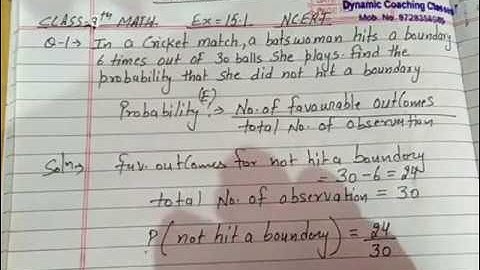 CLASS-9th MATH. Ex=15.1 NCERT
Dynamic Coaching Classes
Mob. No. 9728358085
Q-1→ In a Cricket match, a batswoman hits a boundary
6 times out of 30 balls she plays. find the
probability that she did not hit a boundary
Probability (E) :→ No. of favourable outcomes
total No. of observation
Solⁿ→ fav. outcomes for not hit a boundary
= 30-6 = 24
total No. of observation = 30
P (not hit a boundary) = 24
30